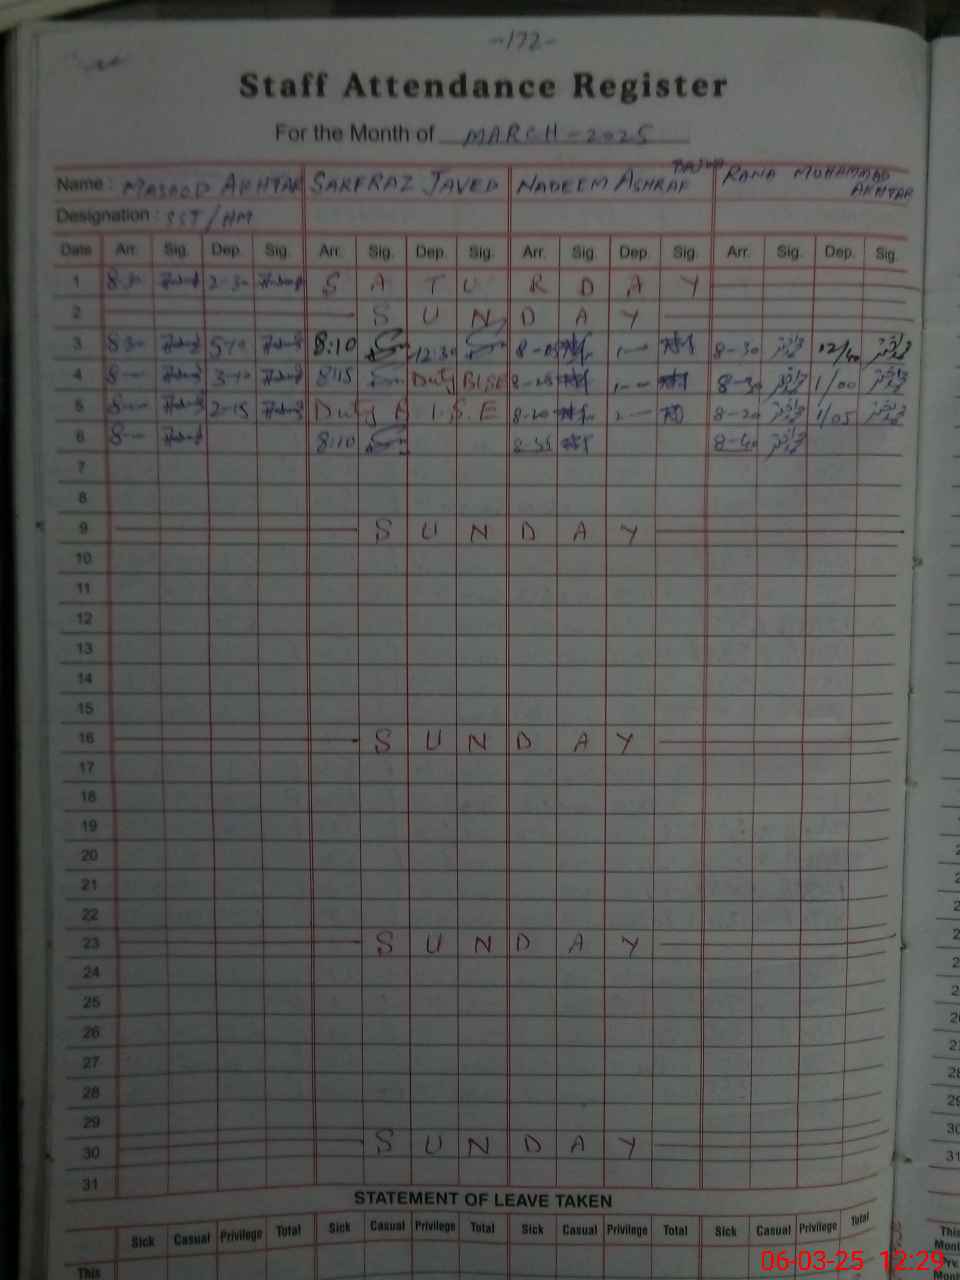 -172-
Staff Attendance Register
For the Month of MARCH-2025
Name: MASOOD AKHTAR SARFRAZ JAVED NADEEM ASHRAF RANA MUHAMMAD AKHTAR
Designation: SST/HM
Date Arr. Sig. Dep. Sig. Arr. Sig. Dep. Sig. Arr. Sig. Dep. Sig. Arr. Sig. Dep. Sig.
1 8-30 2-30 SATURDAY
2 SUNDAY
3 8-30 8:10 12:30 8-30 12/40
4 8- 8:15 Duty BISE 8-30 1/00
5 8- 2-15 Duty B.I.S.E 8-20 8-20 1/05
6 8- 8:10 8-35 8-40
7
8
9 SUNDAY
10
11
12
13
14
15
16 SUNDAY
17
18
19
20
21
22
23 SUNDAY
24
25
26
27
28
29
30 SUNDAY
31
STATEMENT OF LEAVE TAKEN
Sick Casual Privilege Total Sick Casual Privilege Total Sick Casual Privilege Total Sick Casual Privilege Total
This
06-03-25 12:29